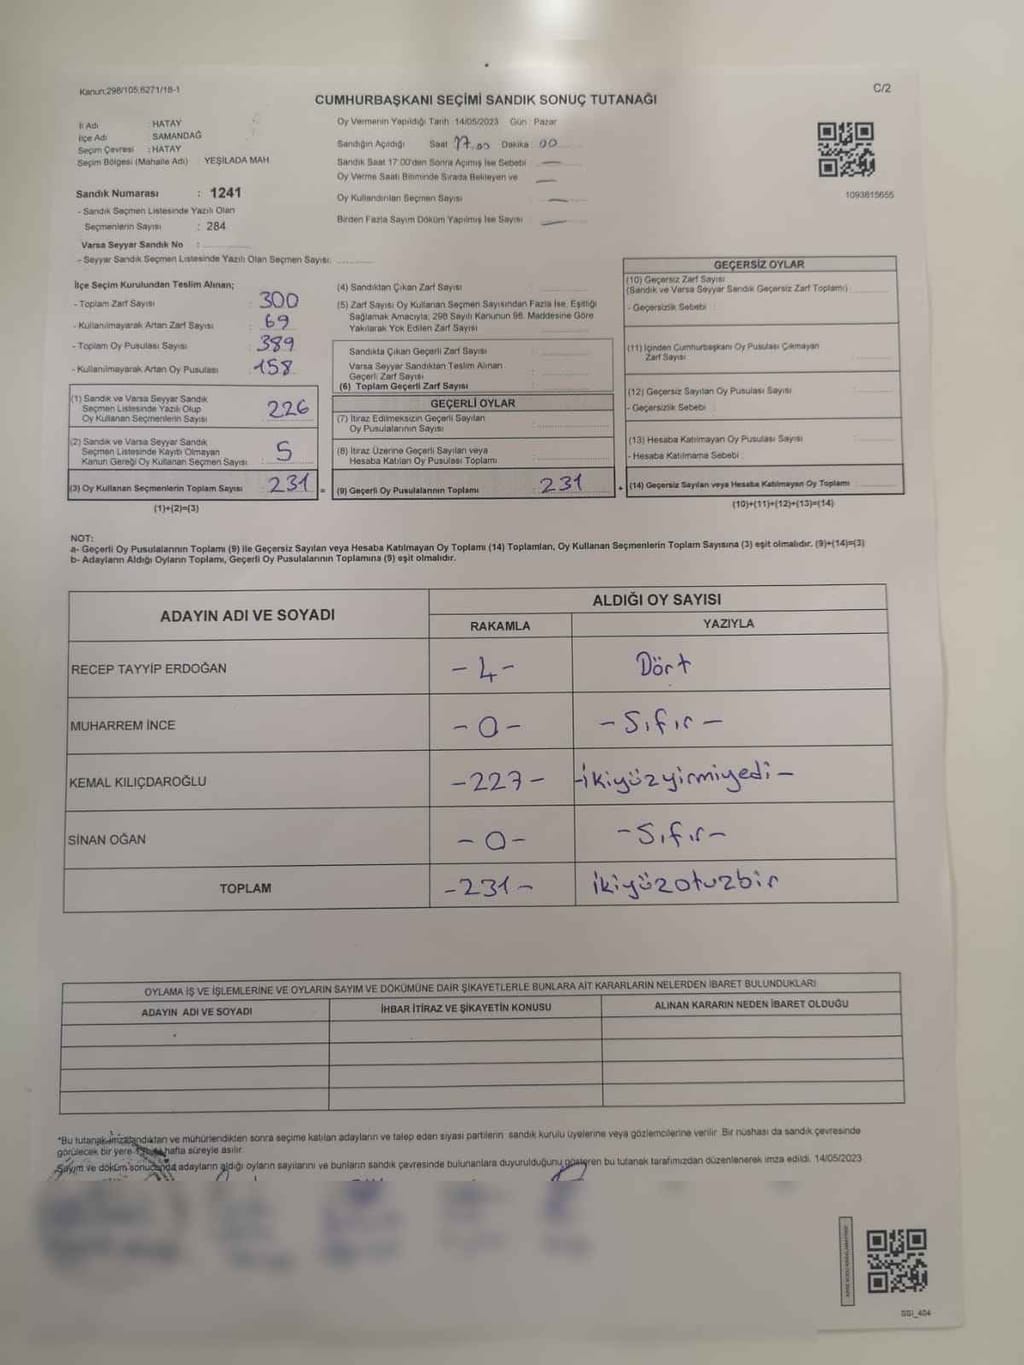 Kanun;298/105;6271/18-1
C/2
CUMHURBAŞKANI SEÇİMİ SANDIK SONUÇ TUTANAĞI
İl Adı HATAY
İlçe Adı SAMANDAĞ
Seçim Çevresi : HATAY
Seçim Bölgesi (Mahalle Adı) : YEŞİLADA MAH
Sandık Numarası : 1241
- Sandık Seçmen Listesinde Yazılı Olan
Seçmenlerin Sayısı : 284
Varsa Seyyar Sandık No :
- Seyyar Sandık Seçmen Listesinde Yazılı Olan Seçmen Sayısı:
Oy Vermenin Yapıldığı Tarih 14/05/2023 Gün : Pazar
Sandığın Açıldığı Saat 17.00 Dakika 00
Sandık Saat 17:00'den Sonra Açılmış İse Sebebi —
Oy Verme Saati Bitiminde Sırada Bekleyen ve —
Oy Kullandırılan Seçmen Sayısı —
Birden Fazla Sayım Döküm Yapılmış İse Sayısı —
1093815655
İlçe Seçim Kurulundan Teslim Alınan;
- Toplam Zarf Sayısı : 300
- Kullanılmayarak Artan Zarf Sayısı : 69
- Toplam Oy Pusulası Sayısı : 389
- Kullanılmayarak Artan Oy Pusulası : 158
(1) Sandık ve Varsa Seyyar Sandık
Seçmen Listesinde Yazılı Olup
Oy Kullanan Seçmenlerin Sayısı : 226
(2) Sandık ve Varsa Seyyar Sandık
Seçmen Listesinde Kayıtlı Olmayan
Kanun Gereği Oy Kullanan Seçmen Sayısı : 5
(3) Oy Kullanan Seçmenlerin Toplam Sayısı : 231 =
(1)+(2)=(3)
(4) Sandıktan Çıkan Zarf Sayısı :
(5) Zarf Sayısı Oy Kullanan Seçmen Sayısından Fazla İse, Eşitliği
Sağlamak Amacıyla, 298 Sayılı Kanunun 98. Maddesine Göre
Yakılarak Yok Edilen Zarf Sayısı :
Sandıkta Çıkan Geçerli Zarf Sayısı :
Varsa Seyyar Sandıktan Teslim Alınan
Geçerli Zarf Sayısı :
(6) Toplam Geçerli Zarf Sayısı :
GEÇERLİ OYLAR
(7) İtiraz Edilmeksizin Geçerli Sayılan
Oy Pusulalarının Sayısı :
(8) İtiraz Üzerine Geçerli Sayılan veya
Hesaba Katılan Oy Pusulası Toplamı :
(9) Geçerli Oy Pusulalarının Toplamı : 231 +
GEÇERSİZ OYLAR
(10) Geçersiz Zarf Sayısı
(Sandık ve Varsa Seyyar Sandık Geçersiz Zarf Toplamı) :
- Geçersizlik Sebebi :
(11) İçinden Cumhurbaşkanı Oy Pusulası Çıkmayan
Zarf Sayısı :
(12) Geçersiz Sayılan Oy Pusulası Sayısı :
- Geçersizlik Sebebi :
(13) Hesaba Katılmayan Oy Pusulası Sayısı :
- Hesaba Katılmama Sebebi :
(14) Geçersiz Sayılan veya Hesaba Katılmayan Oy Toplamı :
(10)+(11)+(12)+(13)=(14)
NOT:
a- Geçerli Oy Pusulalarının Toplamı (9) ile Geçersiz Sayılan veya Hesaba Katılmayan Oy Toplamı (14) Toplamları, Oy Kullanan Seçmenlerin Toplam Sayısına (3) eşit olmalıdır. (9)+(14)=(3)
b- Adayların Aldığı Oyların Toplamı, Geçerli Oy Pusulalarının Toplamına (9) eşit olmalıdır.
ADAYIN ADI VE SOYADI
ALDIĞI OY SAYISI
RAKAMLA YAZIYLA
RECEP TAYYİP ERDOĞAN -4- Dört
MUHARREM İNCE -0- -Sıfır-
KEMAL KILIÇDAROĞLU -227- -ikiyüzyirmiyedi-
SİNAN OĞAN -0- -Sıfır-
TOPLAM -231- ikiyüzotuzbir
OYLAMA İŞ VE İŞLEMLERİNE VE OYLARIN SAYIM VE DÖKÜMÜNE DAİR ŞİKAYETLERLE BUNLARA AİT KARARLARIN NELERDEN İBARET BULUNDUKLARI
ADAYIN ADI VE SOYADI İHBAR İTİRAZ VE ŞİKAYETİN KONUSU ALINAN KARARIN NEDEN İBARET OLDUĞU
*Bu tutanak imzalandıktan ve mühürlendikten sonra seçime katılan adayların ve talep eden siyasi partilerin sandık kurulu üyelerine veya gözlemcilerine verilir. Bir nüshası da sandık çevresinde
görülecek bir yere 1 hafta süreyle asılır.
Sayım ve döküm sonucunda adayların aldığı oyların sayılarını ve bunların sandık çevresinde bulunanlara duyurulduğunu gösteren bu tutanak tarafımızdan düzenlenerek imza edildi. 14/05/2023